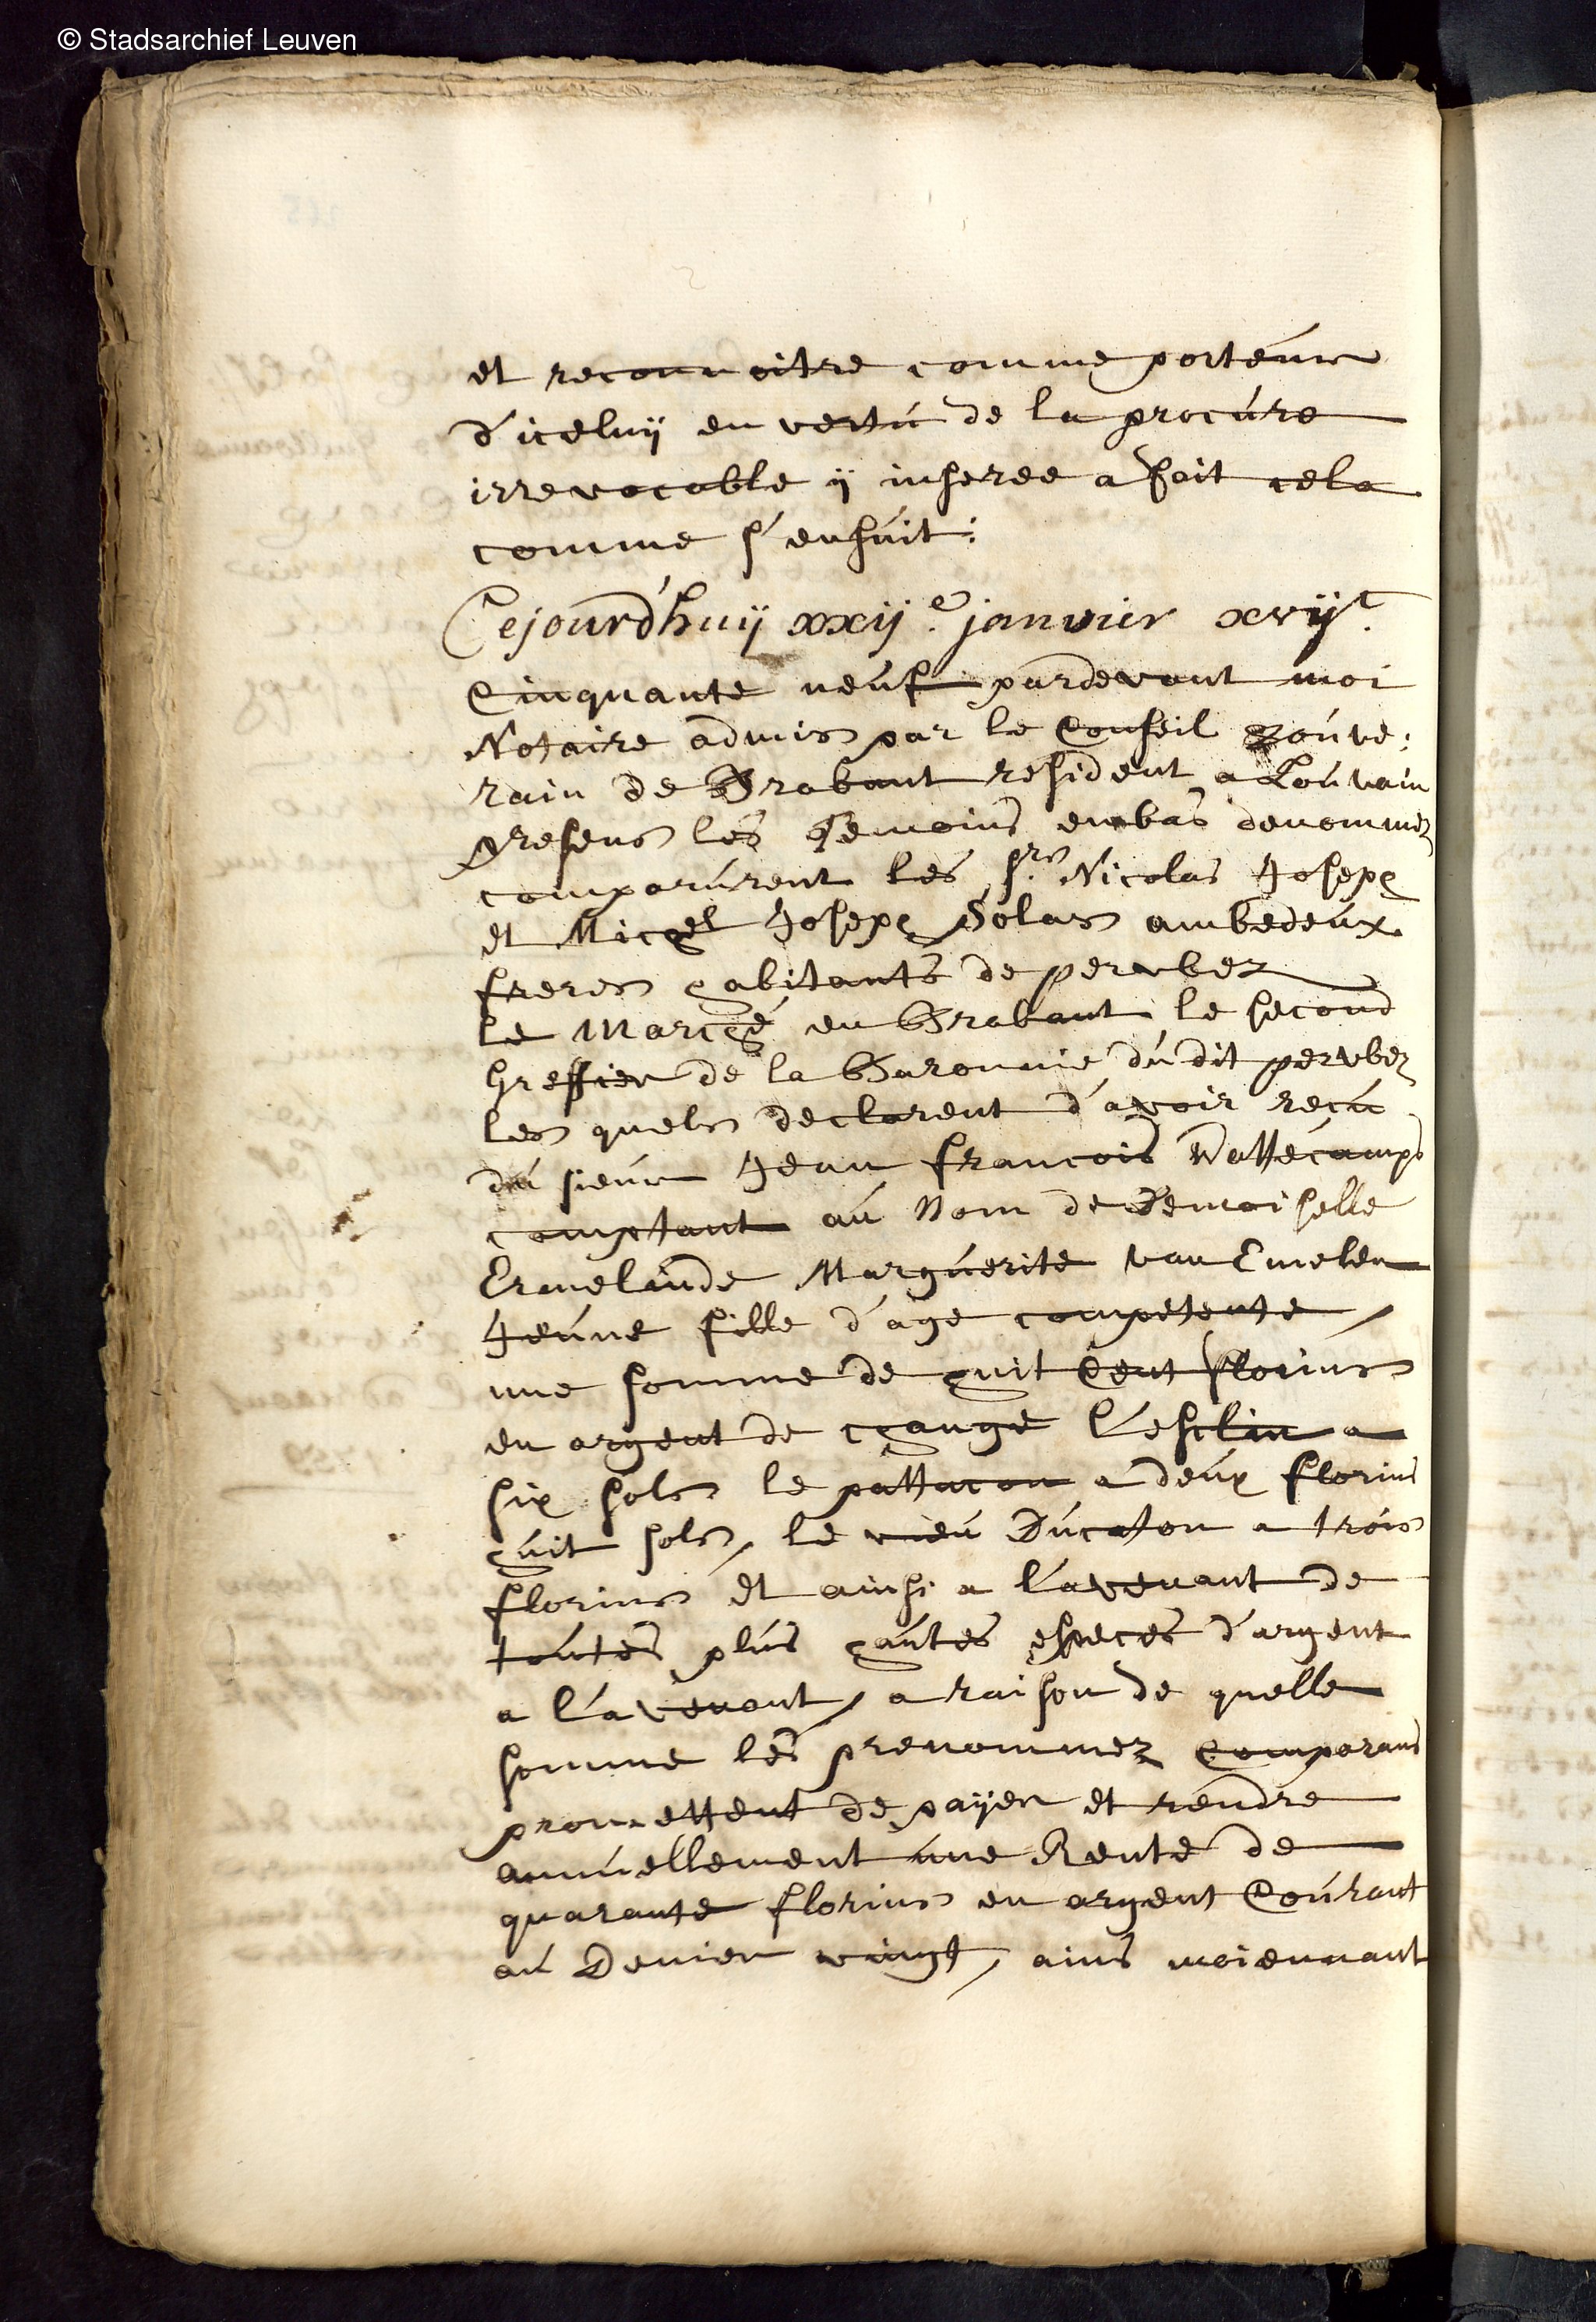 © Stadsarchief Leuven
et reconnoitre comme porteur
d'iceluÿ en vertu de la procure
irrevocable ÿ inseree a fait cela
comme s'ensuit:
Cejourd'huÿ xxij.e janvier xvijc.
Cinquante neuf pardevant moi
Notaire admis par le Conseil Souve:
rain de Brabant resident a Louvain
presens les temoins embas denommez
comparurent les Srs Nicolas Joseph
et Michel Joseph Solas ambedeux
freres habitants de perwbez
le Marché en Brabant le second
greffier de la Baronnie du dit perwbez
les quels declarent d'avoir reçu
du sieur Jean francois Wattecamps
comptant au Nom de Demoiselle
Ermelinde Marguerite van Emelen
Jeune fille d'age competente,
une somme de huit Cent florins
en argent de change l'esclin a
six sols le pattacon a deux florins
huit sols, le vieu Ducaton a trois
florins et ainsi a l'avenant de
toutes plus hautes especes d'argent
a l'avenant, a raison de quelle
somme les prenommez Comparans
promettent de paÿer et rendre
annuellement une Rente de
quarante florins en argent Courant
au Denier vingt, ains moiennant